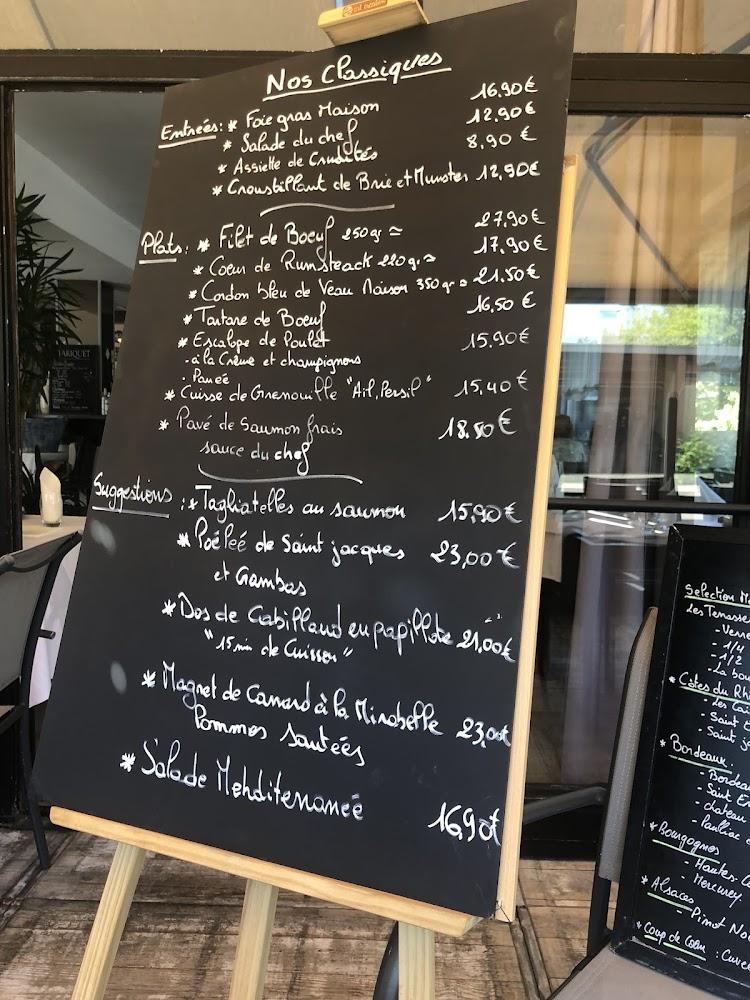 Nos Classiques
Entrées: * Foie gras Maison 16.90€
* Salade du chef 12.90€
* Assiette de Crudités 8,90€
* Croustillant de Brie et Munster 12,90€
Plats: * Filet de Boeuf 250gr ≃ 27,90€
* Coeur de Rumsteack 220gr ≃ 17,90€
* Cordon bleu de Veau Maison 350gr ≃ 21.50€
* Tartare de Boeuf 16,50€
* Escalope de Poulet 15,90€
- à la Crème et champignons
- Paneé
* Cuisse de Grenouille "Ail, Persil" 15,40€
* Pavé de Saumon frais 18.50€
sauce du chef
Suggestions: * Tagliatelles au saumon 15,90€
* Poéleé de Saint jacques 23,00€
et Gambas
* Dos de Cabillaud en papillote 21,00€
"15 min de Cuisson"
* Magret de Canard à la Mirabelle 23,00€
Pommes Sautées
* Salade Mehditerraneé 16,90€
TARIQUET
Selection
Les Terrasse
- 1/4
- 1/2
- La bou
* Côtes du Rh
- Saint
- Saint j
* Bordeaux.
- Bordea
- Saint E
- chateau
* Bourgognes
- Hautes C
- Mercurey
* Alsaces
- Pinot No
* Coup de Coeur : Cuvé